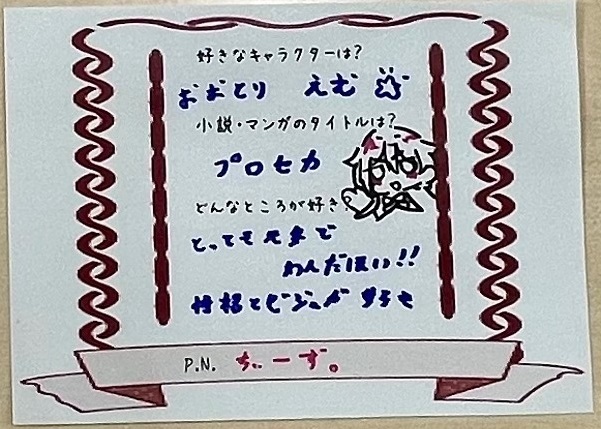 好きなキャラクターは?
おおとり えむ
小説・マンガのタイトルは?
プロセカ
どんなところが好き?
とっても元多で
わんだほい!!
性格とビジュが
P.N. ちーず。